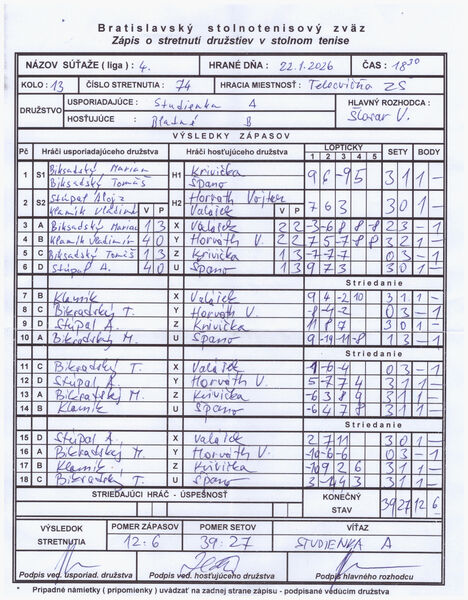 Bratislavský stolnotenisový zväz
Zápis o stretnutí družstiev v stolnom tenise
NÁZOV SÚŤAŽE ( liga ) : 4. HRANÉ DŇA : 22.1.2026 ČAS : 18³⁰
KOLO : 13 ČÍSLO STRETNUTIA : 74 HRACIA MIESTNOSŤ : Telocvičňa ZŠ
DRUŽSTVO USPORIADAJÚCE : Studienka A HLAVNÝ ROZHODCA :
HOSŤUJÚCE : Blatné B Šlosar V.
VÝSLEDKY ZÁPASOV
Pč Hráči usporiadajúceho družstva Hráči hosťujúceho družstva LOPTIČKY SETY BODY
1 2 3 4 5
1 S1 Biksadský Marian H1 Krivička 9 6 -9 5 3 1 1 -
Biksadský Tomáš Špano
2 S2 Stúpal Alojz H2 Horváth Vojtech 7 6 3 3 0 1 -
Klamík Vladimír V P Valášek V P
3 A Biksadský Marian 1 3 X Valášek 2 2 -3 -6 8 -8 2 3 - 1
4 B Klamík Vladimír 4 0 Y Horváth V. 2 2 7 5 -7 -8 8 3 2 1 -
5 C Biksadský Tomáš 1 3 Z Krivička 1 3 -7 -7 -7 0 3 - 1
6 D Stúpal A. 4 0 U Špano 1 3 9 7 3 3 0 1 -
Striedanie
7 B Klamík X Valášek 9 4 -2 10 3 1 1 -
8 C Biksadský T. Y Horváth V. -8 -4 -2 0 3 - 1
9 D Stúpal A. Z Krivička 11 8 7 3 0 1 -
10 A Biksadský M. U Špano 9 -19 -11 -8 1 3 - 1
Striedanie
11 C Biksadský T. X Valášek -6 -4 0 3 - 1
12 D Stúpal A. Y Horváth V. 5 -7 7 4 3 1 1 -
13 A Biksadský M. Z Krivička -6 3 8 9 3 1 1 -
14 B Klamík U Špano -6 4 7 8 3 1 1 -
Striedanie
15 D Stúpal A. X Valášek 2 7 11 3 0 1 -
16 A Biksadský M. Y Horváth V. -10 -6 -6 0 3 - 1
17 B Klamík Z Krivička -10 9 2 6 3 1 1 -
18 C Biksadský T. U Špano 3 1 1 -
STRIEDAJÚCI HRÁČ - ÚSPEŠNOSŤ KONEČNÝ STAV 39 27 12 6
VÝSLEDOK STRETNUTIA POMER ZÁPASOV POMER SETOV VÍŤAZ
12 : 6 39 : 27 STUDIENKA A
Podpis ved. usporiad. družstva Podpis ved. hosťujúceho družstva Podpis hlavného rozhodcu
* Prípadné námietky ( pripomienky ) uvádzať na zadnej strane zápisu - podpísané vedúcim družstva